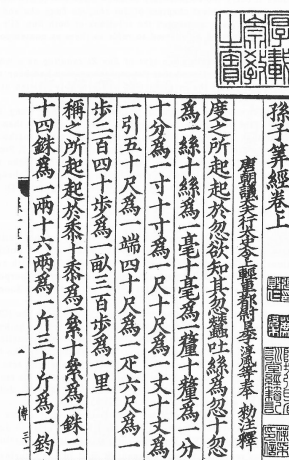 孫子算經卷上
唐朝議大夫行太史令上輕車都尉臣李淳風等奉 勅注釋
度之所起起於忽欲知其忽蠶吐絲爲忽十忽
爲一絲十絲爲一毫十毫爲一氂十氂爲一分
十分爲一寸十寸爲一尺十尺爲一丈十丈爲
一引五十尺爲一端四十尺爲一疋六尺爲一
步二百四十步爲一畝三百步爲一里
稱之所起起於黍十黍爲一絫十絫爲一銖二
十四銖爲一兩十六兩爲一斤三十斤爲一鈞